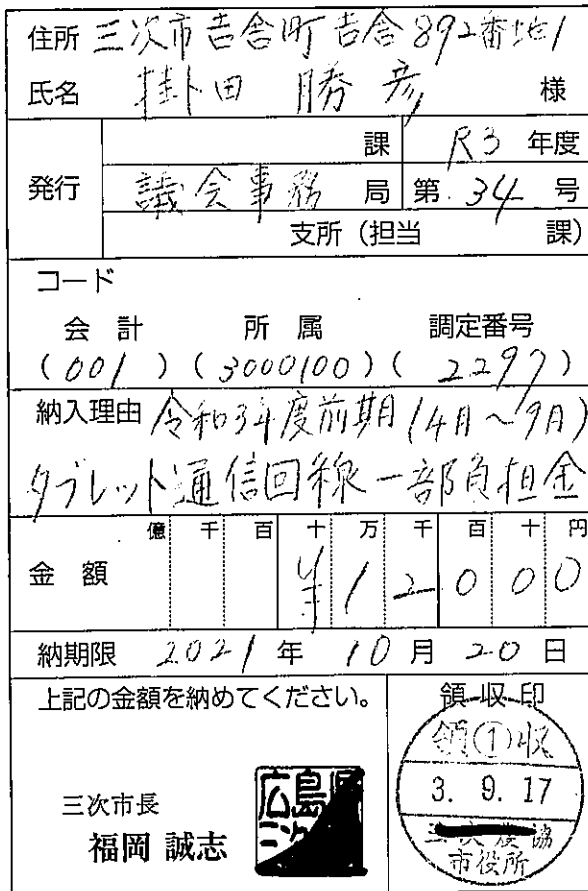 住所 三次市吉舎町吉舎892番地1
氏名 掛田 勝彦 様
課 R3 年度
発行 議会事務 局 第 34 号
支所 (担当 課)
コード
会計 所属 調定番号
(001) (3000100) (2297)
納入理由 令和3年度前期 (4月~9月)
タブレット通信回線一部負担金
億 千 百 十 万 千 百 十 円
金額 ¥12000
納期限 2021 年 10 月 20 日
上記の金額を納めてください。
領収印
領①収
3. 9. 17
農協
市役所
三次市長
福岡 誠志
広島